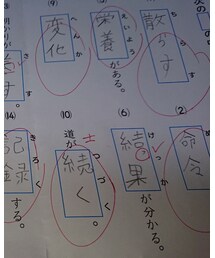 散らす
ち
栄養がある。
えいよう
(9)
変化
へんか
(2)
命令
(6)
結果が分かる。
けっか
(10)
道が続く。
つづく
(14)
記録する。
きろく